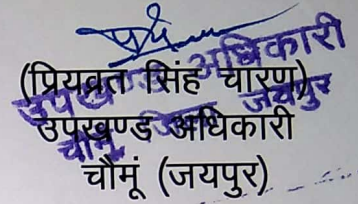 (प्रियव्रत सिंह चारण)
उपखण्ड अधिकारी
चौमूं (जयपुर)
उपखण्ड अधिकारी
चौमू, जिला जयपुर